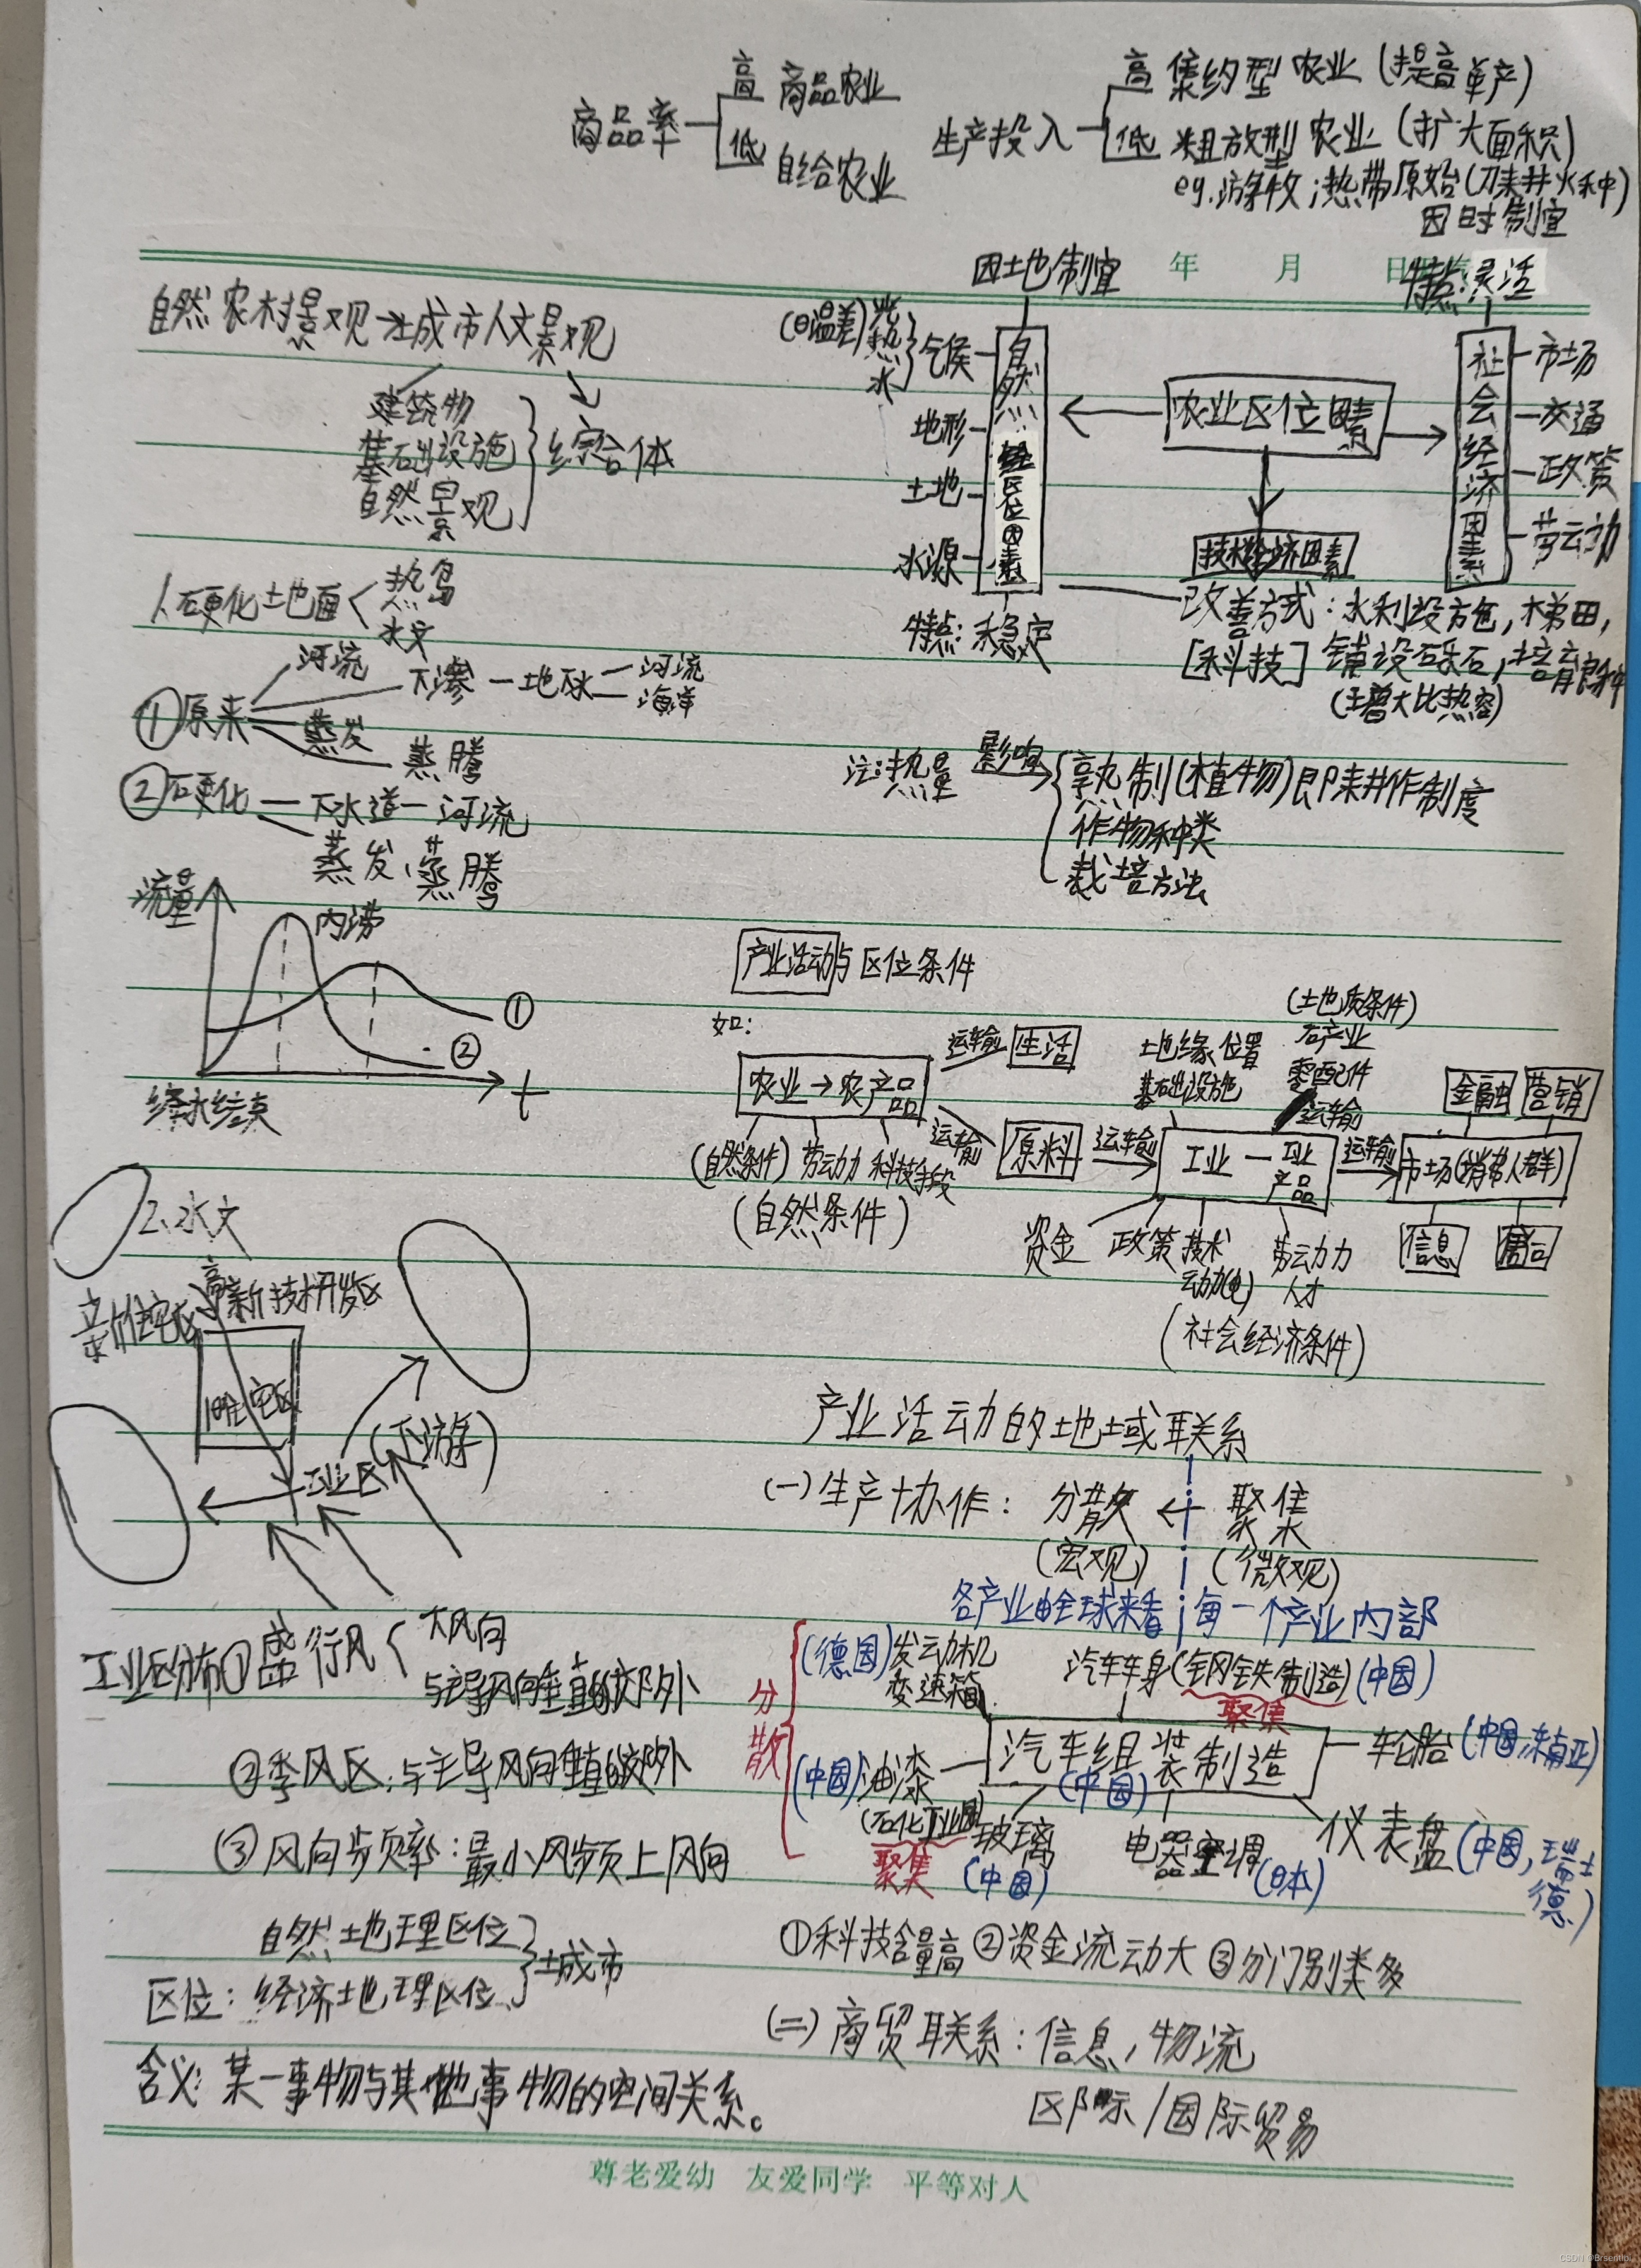 商品率
高 商品农业
低 自给农业
生产投入
高 集约型农业(提高单产)
低 粗放型农业(扩大面积)
eg.游牧;热带原始(刀耕火种)
因时制宜
年 月 日
特点:灵活
因地制宜
自然农村景观→城市人文景观
建筑物
基础设施
自然景观
综合体
(日温差)
光
热
水
气候
地形
土地
水源
自然
区位因素
特点:稳定
农业区位因素
社会经济因素
市场
交通
政策
劳动力
技术经济因素
改善方式:水利设施,梯田,
[科技] 铺设砾石,培育良种
(增大比热容)
1.硬化地面
热岛
水文
①原来
河流
下渗—地下水—河流
海洋
蒸发
蒸腾
②硬化—下水道—河流
蒸发、蒸腾
注:热量 影响
熟制(植物)即耕作制度
作物种类
栽培方法
流量
内涝
①
②
降水结束
t
产业活动与区位条件
如:
农业→农产品
运输 生活
运输 原料
(自然条件) 劳动力 科技手段
(自然条件)
运输
地缘、位置
基础设施
(地质条件)
石产业
零配件
运输
工业—工业产品
资金 政策 技术
动力(电)
劳动力
人才
(社会经济条件)
运输
市场(消费人群)
金融 营销
信息
2.水文
新住宅区
高新技术开发区
旧住宅区
工业区
(下游)
产业活动的地域联系
(一)生产协作:分散←聚集
(宏观) (微观)
各产业由全球来看 每一个产业内部
工业区分布①盛行风
下风向
与主导风向垂直的郊外
②季风区:与主导风向垂直的郊外
③风向频率:最小风频上风向
分散
(德国)发动机
变速箱
汽车车身(钢铁制造)(中国)
聚集
(中国)油漆
(石化工业园)
聚集
汽车组装制造
(中国)
轮胎(中国,东南亚)
玻璃
(中国)
电器空调(日本)
仪表盘(中国,瑞士
德)
①科技含量高②资金流动大③分门别类多
自然地理区位
区位:经济地理区位
城市
(二)商贸联系:信息,物流
区际/国际贸易
含义:某一事物与其他事物的空间关系。
尊老爱幼 友爱同学 平等对人
CSDN @Brsentibi